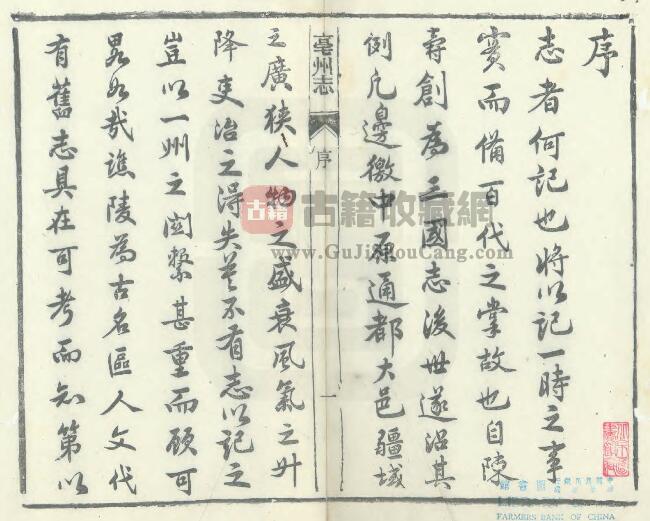 序
志者何記也將以記一時之事
實而備百代之掌故也自陳
壽創為三國志後世遂沿其
例凡邊徼中原通都大邑疆域
亳州志
序
一
之廣狹人物之盛衰風氣之升
降吏治之得失莫不有志以記之
豈以一州之關繫甚重而顧可
畧如哉譙陵為古名區人文代
有舊志具在可考而知第以
古籍
古籍收藏網
www.GuJiShouCang.com
FARMERS BANK OF CHINA